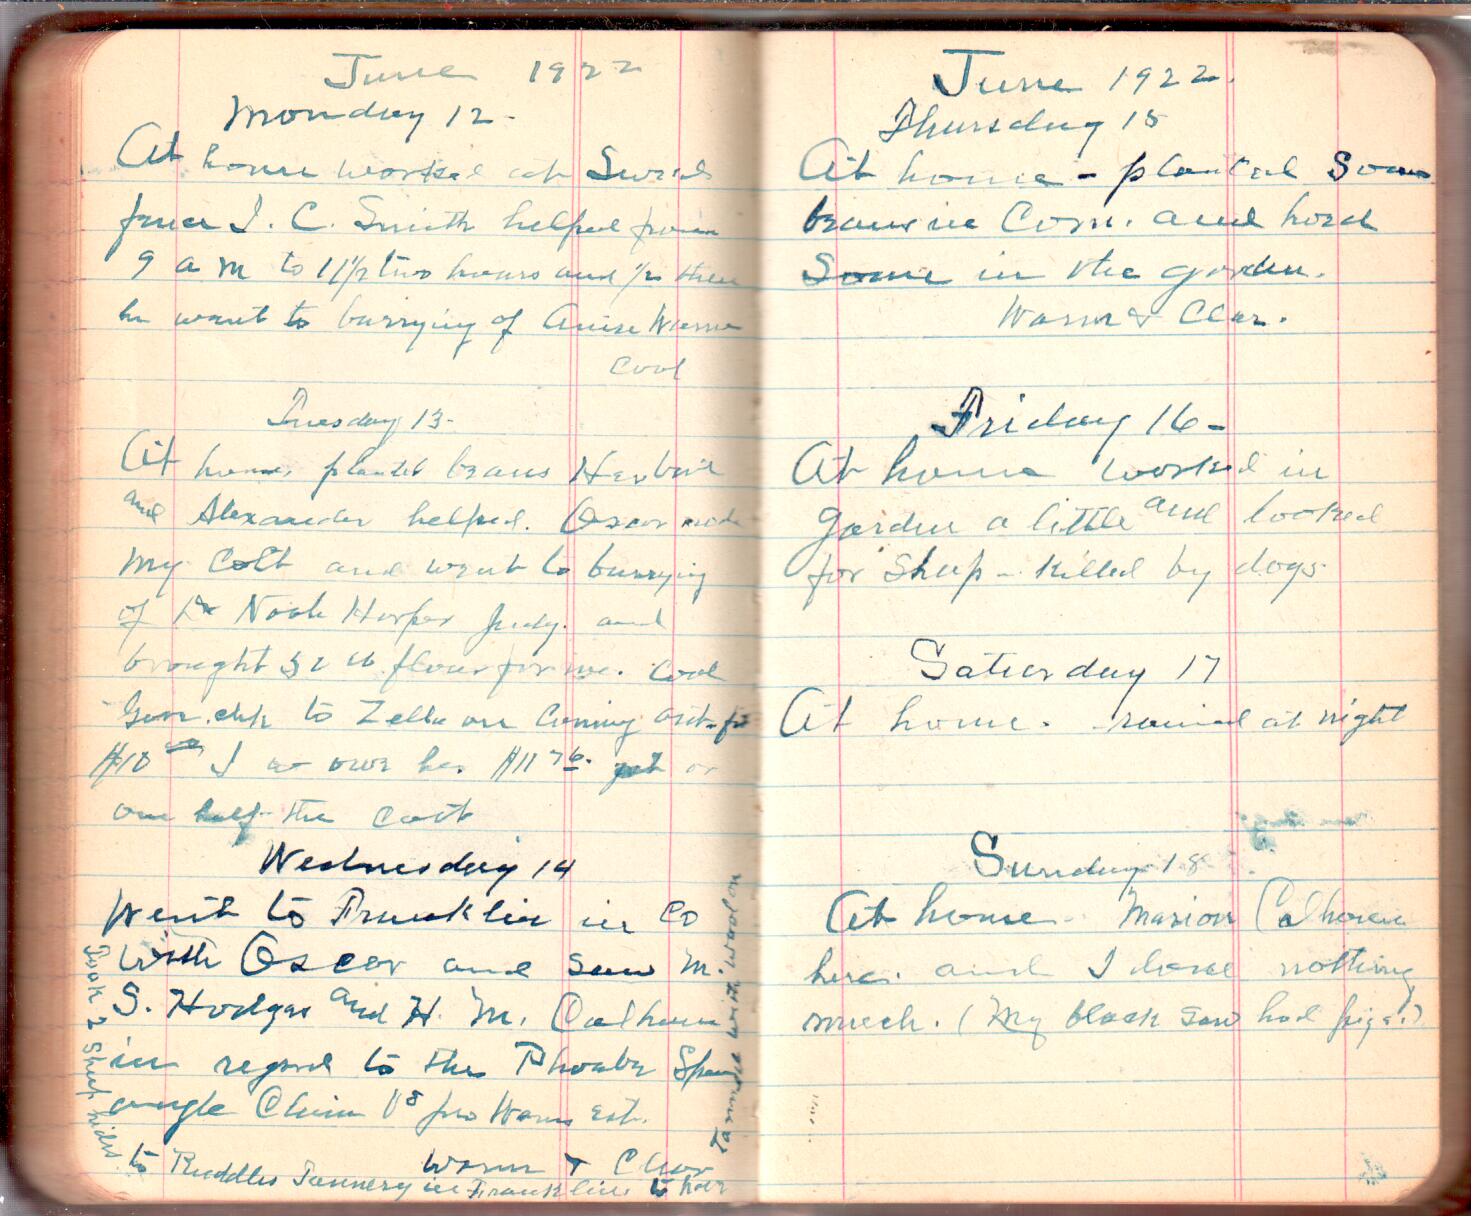 June 1922
Monday 12-
At home worked at
fence I. C. Smith helped from
9 a m to 11 1/2 two hours and 1/2 then
he went to burrying of Amise
Cool
Tuesday 13-
At home, planted beans
and Alexander helped. Oscar rode
My Colt and went to burrying
of Dr Noah Harper Judy. and
brought 32 lb flour for me. Cool
Gave chk to Zella on Coming
$10 I owe her $11 76 or
one half the Cost
Wednesday 14
Went to Franklin in Co
With Oscar and saw M.
S. Hodges and H. M. Calhoun
in regard to the Phoebe Spon
augle Claim Vs est.
Warm & Clear
Took 2 Sheep hides
to Ruddles Tannery in Franklin to have
Tanned with wool on
June 1922.
Thursday 15
At home - planted Some
beans in Corn. and hoed
Some in the garden.
Warm & Clear.
Friday 16-
At home worked in
garden a little and looked
for Sheep - Killed by dogs
Saturday 17
At home. - rained at night
Sunday 18
At home - Marion Calhoun
here. and I done nothing
much. (My black Sow had pigs.)